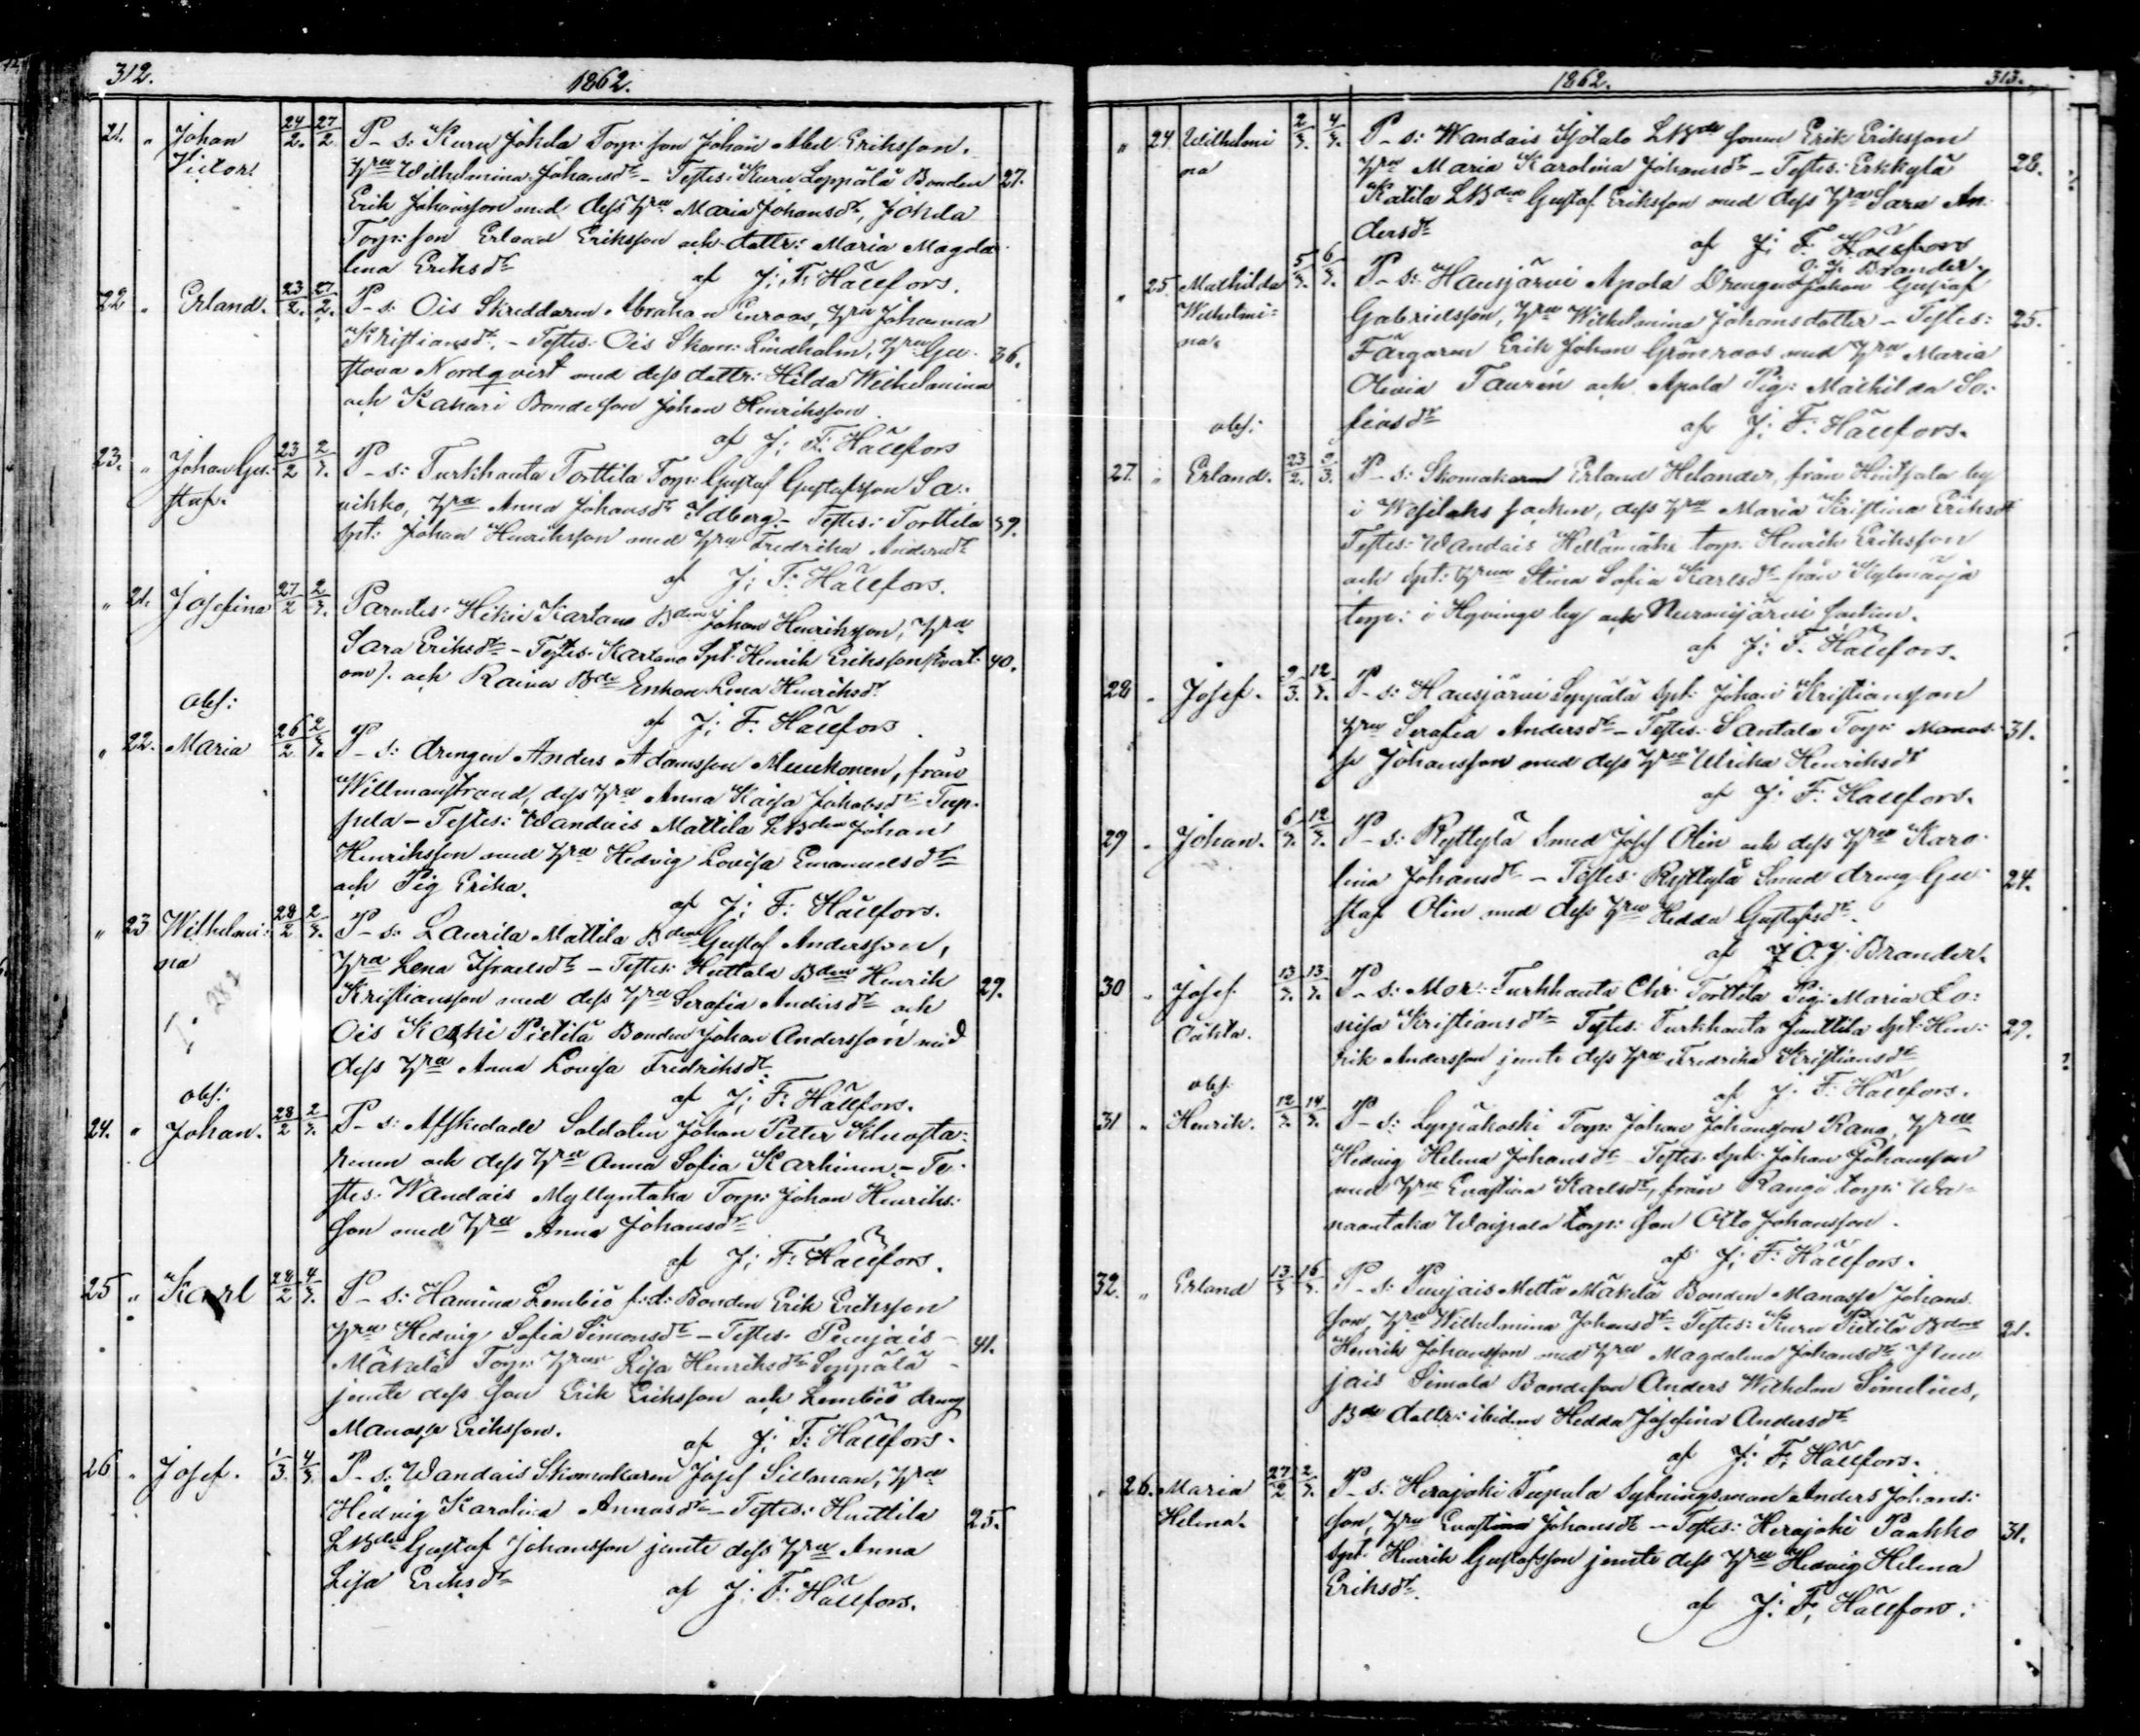 312.
1862.
21. " Johan 24/2. 27/2 P-s: Kuru Jokela Torp: son Johan Abel Eriksson.
Victor. hru Wilhelmina Johansdr - Testes: Kuru Seppälä Bonden 27.
Erik Johansson med dess hru Maria Johansdr, Jokela
Torp: son Erland Eriksson och dottr: Maria Magda-
lena Eriksdr
af J: F: Hällfors.
22 " Erland. 23/2. 27/2. P-s: Ois Skreddaren Abraham Enroos, hru Johanna
Kristiansdr. - Testes: Ois Skom: Lindholm, hru Gu- 36.
stava Nordqvist med dess dottr: Hilda Wilhelmina
och Kahari Bondeson Johan Henriksson.
af J: F: Hällfors
23. " Johan Gu- 23/2 2/3. P-s: Turkhauta Torttila Torp: Gustaf Gustafsson Sa-
staf. vikko, hru Anna Johansdr Idberg. - Testes: Torttila 39.
Spt: Johan Henriksson med hru Fredrika Andersdr
af J: F: Hällfors.
" 21. Josefina 27/2 2/3. Parentes: Hikiä Kartano Bden Johan Henriksson, hru
Sara Eriksdr - Testes: Kartano Spt: Henrik Eriksson (tvert- 40.
om). och Raina Bde Enkan Lena Henriksdr
obs: af J: F. Hällfors
" 22. Maria 26/2 2/3. P-s: drengen Anders Adamsson Muukonen, från
Willmanstrand, dess hru Anna Kaisa Jakobsdr Tup-
pela - Testes: Wandais Mattila LBden Johan
Henriksson med hru Hedvig Lovisa Emanuelsdr
och Pig Erika.
af J: F: Hällfors.
" 23 Wilhelmi- 28/2 2/3. P-s: Laurila Mattila Bden Gustaf Andersson,
na hru Lena Israelsdr - Testes: Huttala Bden Henrik
Kristiansson med dess hru Serafia Andersdr och 29.
Ois Koski Pietilä Bonden Johan Andersson med
dess hru Anna Lovisa Fredriksdr
obs: af J: F: Hällfors.
24. " Johan. 28/2 2/3. P-s: Afskedade Soldaten Johan Petter
och dess hru Anna Sofia Karhinen. - Te-
stes: Wandais Myllyntaka Torp: Johan Henriks-
son med hru Anna Johansdr
af J: F: Hällfors.
25 " Karl 28/2 4/3. P-s: Hamina Lembiö f:d: Bonden Erik Eriksson
hru Hedvig Sofia Simonsdr - Testes: Punjais- 41.
Mäkelä Torp: hrun Lisa Henriksdr Seppälä
jemte dess son Erik Eriksson och Lembiö dreng
Manasse Eriksson. af J: F: Hällfors.
26 " Josef. 1/3. 4/3. P-s: Wandais Skomakaren Josef Sillman, hru
Hedvig Karolina Annasdr - Testes: Huittila 25.
LBden Gustaf Johansson jemte dess hru Anna
Lisa Eriksdr
af J: F: Hällfors.
1862. 313.
" 24 Wilhelmi 2/3. 4/3. P-s: Wandais Isotalo LBde sonen Erik Eriksson
na hru Maria Karolina Johansdr - Testes: Erkkylä 28.
Katila LBden Gustaf Eriksson med dess hru Sara An-
dersdr
af J: F: Hällfors
O: J: Brander.
" 25. Mathilda 5/3. 6/3. P-s: Hausjärvi Apola Drengen Johan Gustaf
Wilhelmi- Gabrielsson, hru Wilhelmina Johansdotter - Testes: 25.
na. Färgaren Erik Johan Grönroos med hru Maria
Olivia Taurén och Apola Pig: Mathilda So-
obs: fiasdr af J: F: Hällfors.
27. " Erland. 23/2. 9/3. P-s: Skomakaren Erland Helander, från Hintsala by
i Wesilaks socken, dess hru Maria Kristina Eriksdr
Testes: Wandais Hellämäki torp. Henrik Eriksson
och Spt: hrun Stina Sofia Karlsdr från Kylmäoja
torp: i Hyvinge by och Nurmijärvi socken.
af J: F. Hällfors.
28 " Josef. 9/3. 12/3. P-s: Hausjärvi Seppälä Spt: Johan Kristiansson
hru Serafia Andersdr - Testes: Santala Torp: Manas- 31.
se Johansson med dess hru Ulrika Henriksdr
af J: F. Hällfors.
29 " Johan. 6/3. 12/3. P-s: Ryttylä Smed Josef Olin och dess hru Karo-
lina Johansdr - Testes: Ryttylä Smed dreng Gu- 24.
staf Olin med dess hru Hedda Gustafsdr.
af O. J: Brander.
30 " Josef 13/3. 13/3. P-s: Mor: Turkhauta Chr: Torttila Pig: Maria Lo-
Oäkta. visa Kristiansdr Testes: Turkhauta Junttila Spt: Hen- 29.
rik Andersson jemte dess hru Fredrika Kristiansdr
obs: af J: F: Hällfors.
31 " Henrik. 12/3. 14/3. P-s: Leppäkoski Torp: Johan Johansson Rang, hru
Hedvig Helena Johansdr - Testes: Spt: Johan Johansson
med hru Evastina Karlsdr, från Rangi torp: Wa-
raantaka Torp: son Otto Johansson.
af J: F: Hällfors.
32. " Erland 13/3 16/3. P-s: Punjais Mettä Mäkelä Bonden Manasse Johans-
son, hru Wilhelmina Johansdr. Testes: Kuru Pietilä Bden 21.
Henrik Johansson med hru Magdalena Johansdr, Pun-
jais Simola Bondeson Anders Wilhelm Simelius,
Bde dottr: ibidem Hedda Josefina Andersdr
af J: F: Hällfors.
" 26. Maria 27/2 2/3. P-s: Herajoki Tupala Sytningsman Anders Johans-
Helena. son, hru Evastina Johansdr - Testes: Herajoki Paakko 31.
Spt: Henrik Gustafsson jemte dess hru Hedvig Helena
Eriksdr.
af J: F: Hällfors.